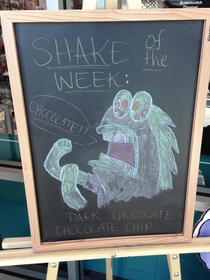 Butterscotch
SHAKE of
the
WEEK:
CHOCOLATE!!
DARK CHOCOLATE
CHOCOLATE CHIP